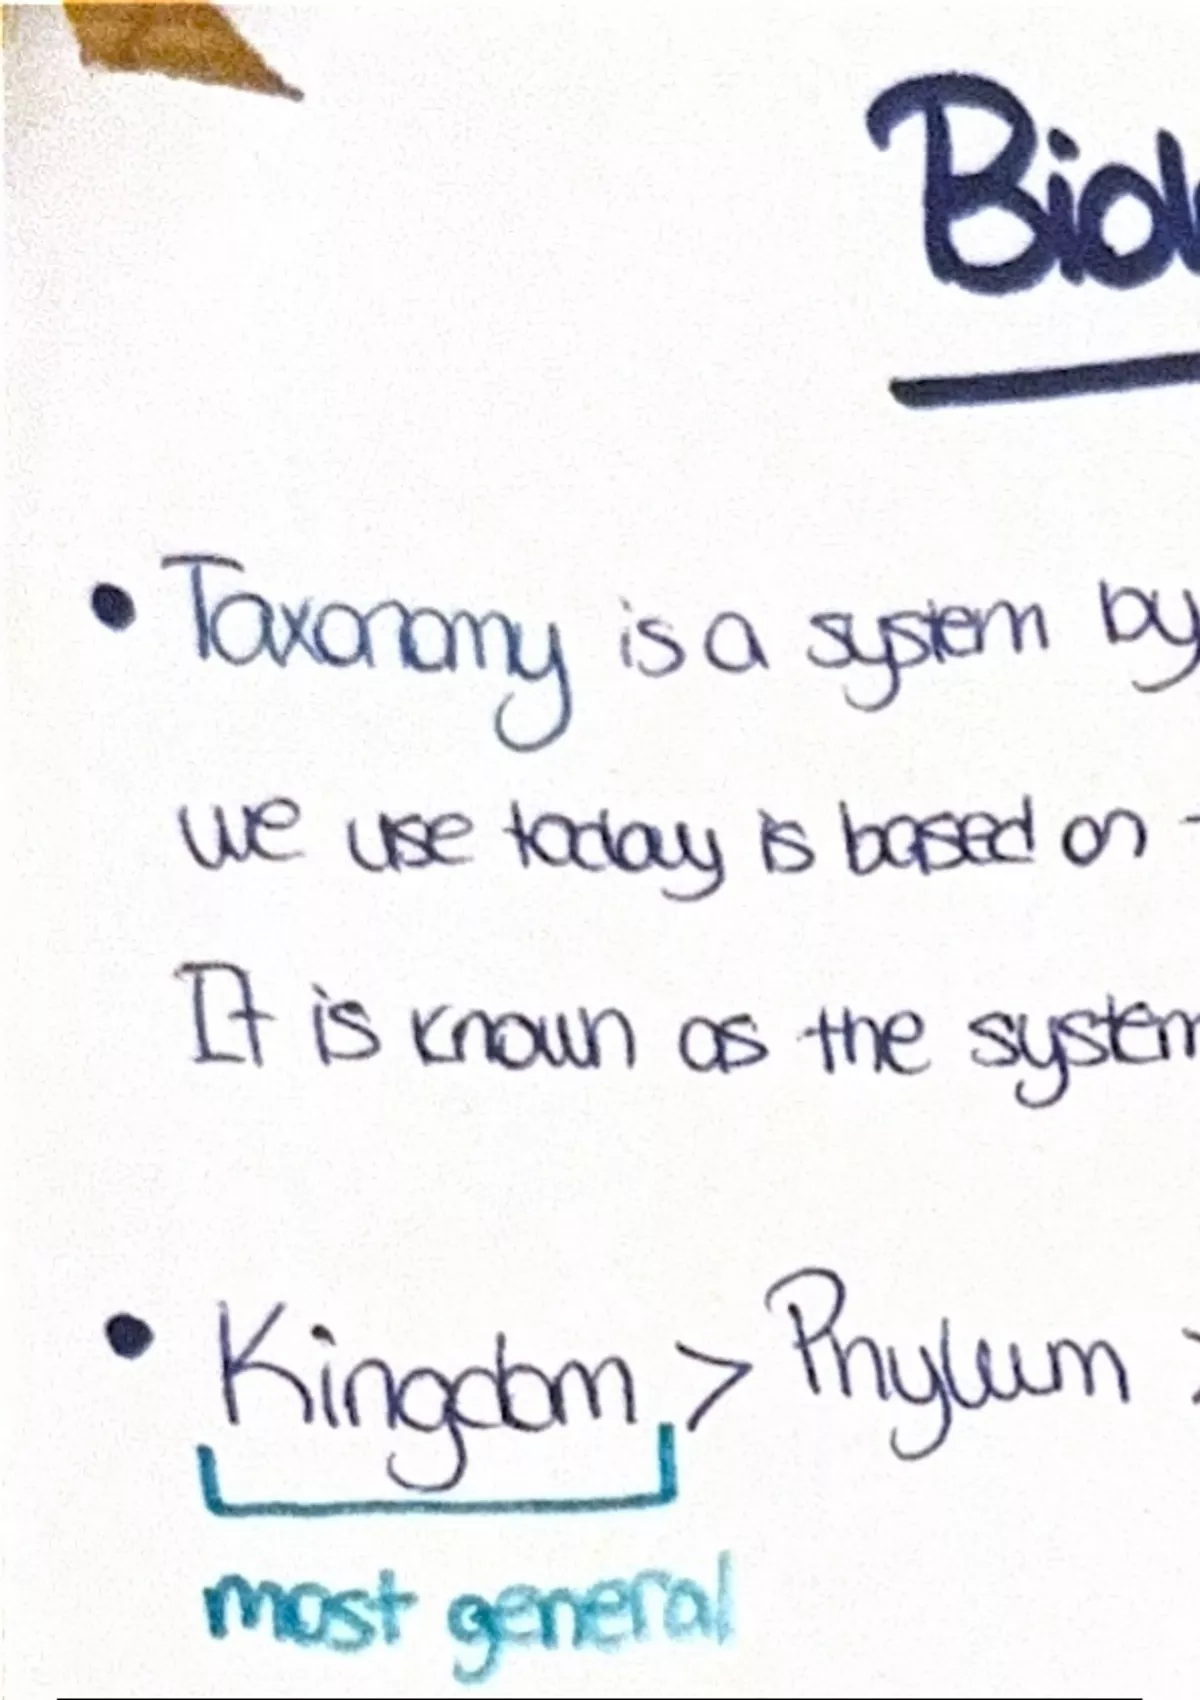 Biol
• Taxonomy is a system by
we use today is based on
It is known as the system
• Kingdom > Phylum >
most general